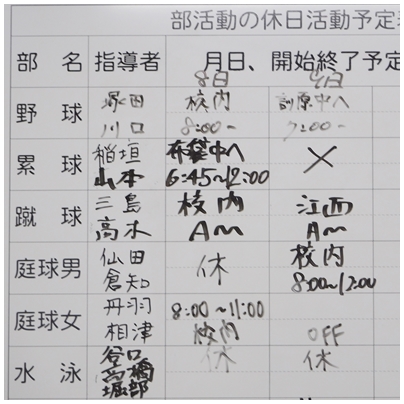 部活動の休日活動予定表
部 名 指導者 月日、開始終了予定
8日 9日
野 球 塚田 校内
川口 8:00~ 7:00~
累 球 稲垣 布袋中へ ×
山本 6:45~12:00
蹴 球 三島 校内 江西
高木 AM AM
庭球男 仙田 休 校内
倉知 8:00~12:00
庭球女 丹羽 8:00~11:00
相津 校内 OFF
水 泳 谷口 休 休
高橋
堀部